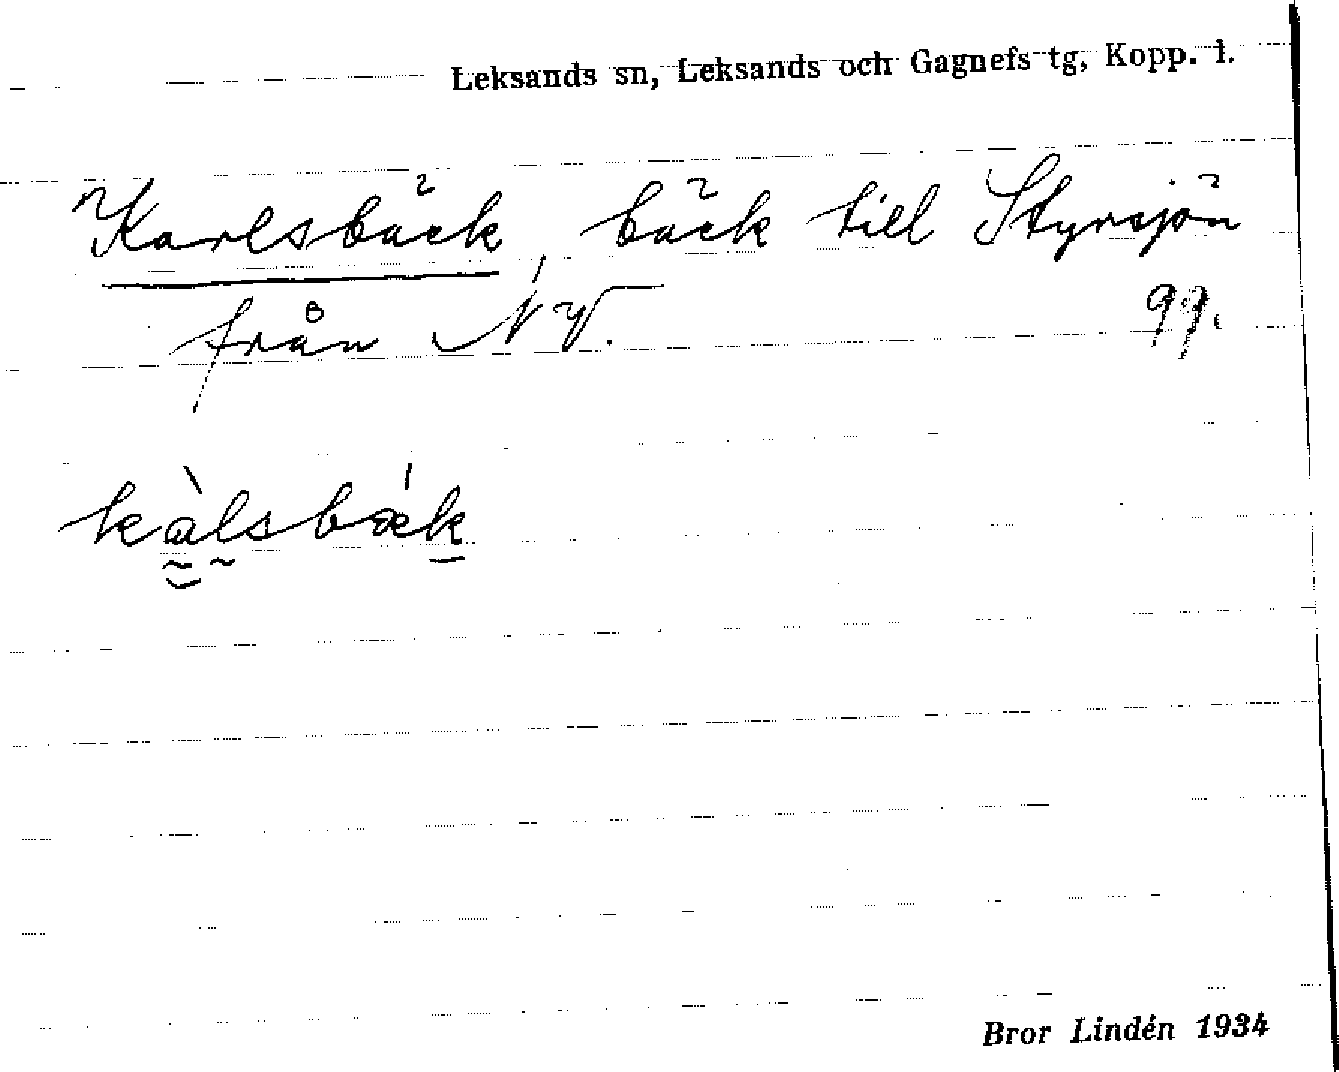 Leksands sn, Leksands och Gagnefs tg, Kopp. l.
Karlsbäck, bäck till Styrsjön
från NV. 99.
kàlsbǽk
Bror Lindén 1934